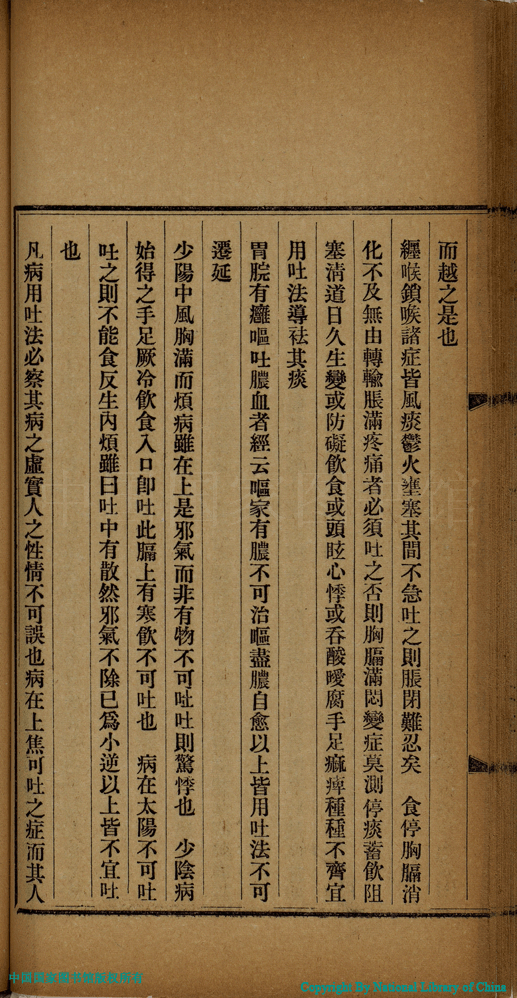 而越之是也
纒喉鎖喉諸症皆風痰鬱火壅塞其間不急吐之則脹閉難忍矣　食停胸膈消
化不及無由轉輸脹滿疼痛者必須吐之否則胸膈滿悶變症莫測停痰蓄飲阻
塞清道日久生變或防礙飲食或頭眩心悸或吞酸噯腐手足痲痺種種不齊宜
用吐法導祛其痰
胃脘有癰嘔吐膿血者經云嘔家有膿不可治嘔盡膿自愈以上皆用吐法不可
遷延
少陽中風胸滿而煩病雖在上是邪氣而非有物不可吐吐則驚悸也　少陰病
始得之手足厥冷飲食入口卽吐此膈上有寒飲不可吐也　病在太陽不可吐
吐之則不能食反生內煩雖曰吐中有散然邪氣不除已爲小逆以上皆不宜吐
也
凡病用吐法必察其病之虛實人之性情不可誤也病在上焦可吐之症而其人
中国国家图书馆版权所有
Copyright By National Library of China